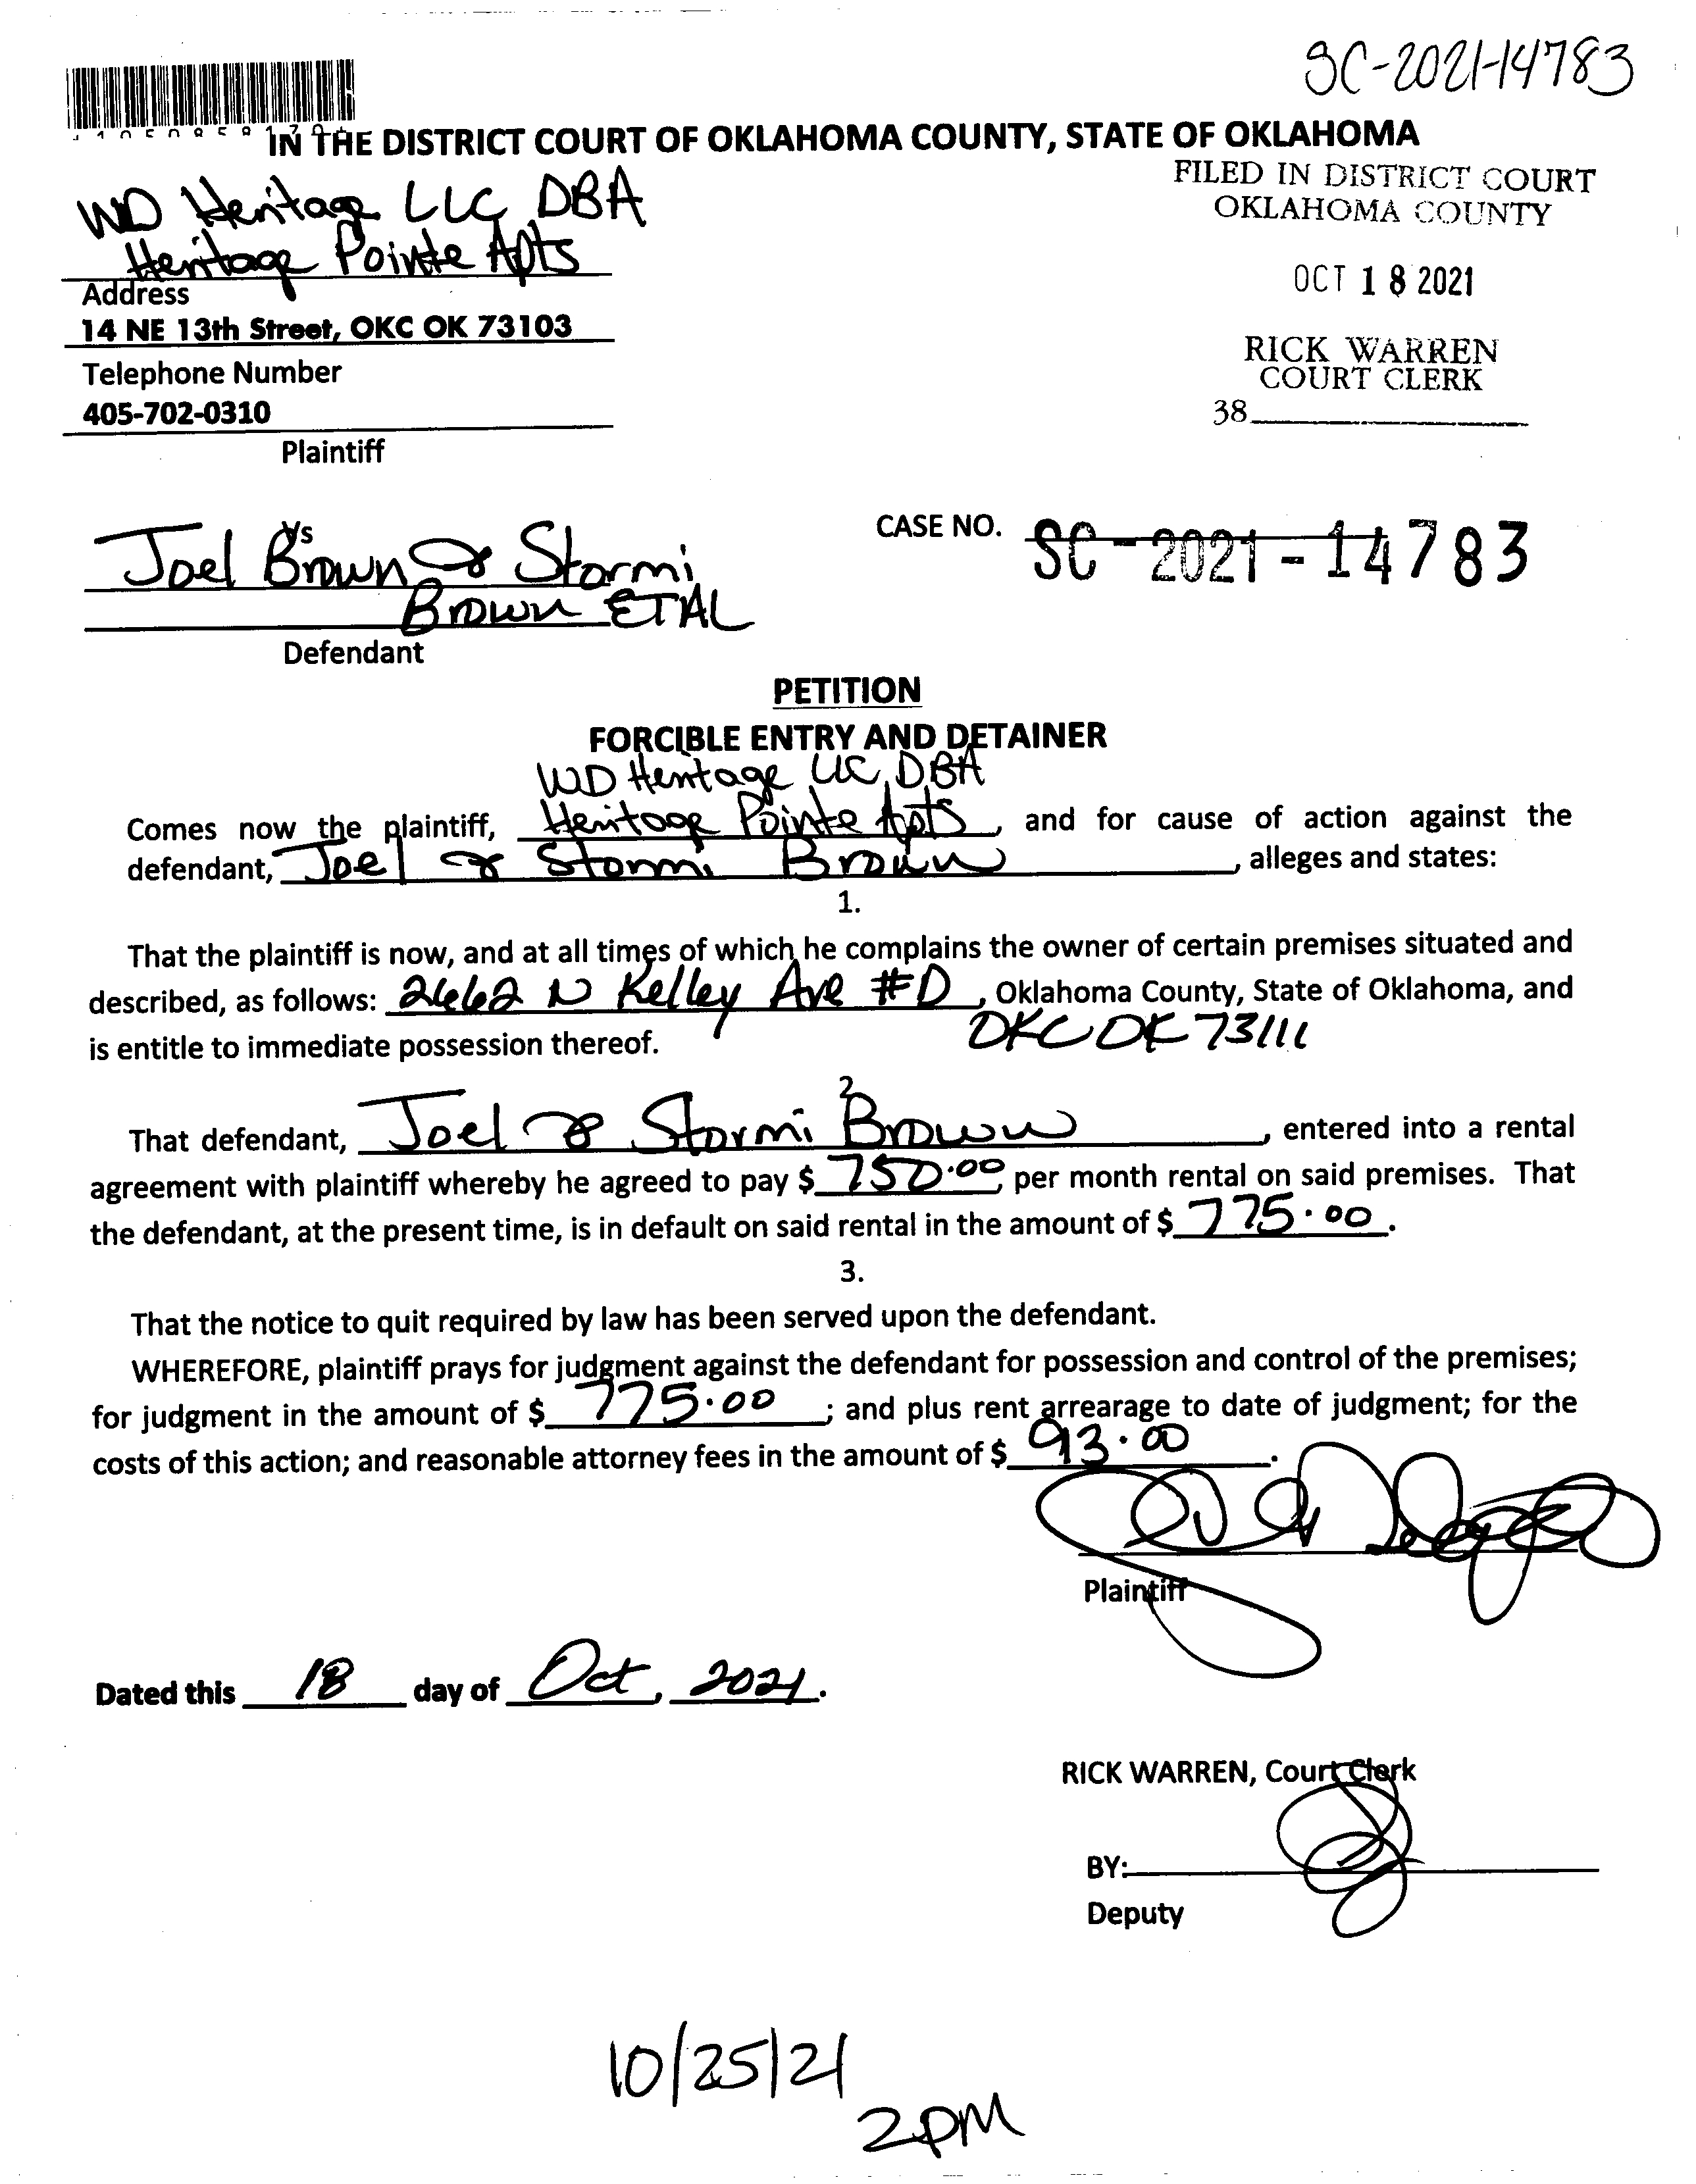 SC-2021-14783
IN THE DISTRICT COURT OF OKLAHOMA COUNTY, STATE OF OKLAHOMA
FILED IN DISTRICT COURT
OKLAHOMA COUNTY
OCT 18 2021
RICK WARREN
COURT CLERK
38
WD Heritage LLC DBA
Heritage Pointe Apts
Address
14 NE 13th Street, OKC OK 73103
Telephone Number
405-702-0310
Plaintiff
Vs
CASE NO. SC-2021-14783
Joel Brown & Stormi
Brown ETAL
Defendant
PETITION
FORCIBLE ENTRY AND DETAINER
WD Heritage LLC DBA
Comes now the plaintiff, Heritage Pointe Apts, and for cause of action against the
defendant, Joel & Stormi Brown, alleges and states:
1.
That the plaintiff is now, and at all times of which he complains the owner of certain premises situated and
described, as follows: 2662 N Kelley Ave #D, Oklahoma County, State of Oklahoma, and
OKC OK 73111
is entitle to immediate possession thereof.
2
That defendant, Joel & Stormi Brown, entered into a rental
agreement with plaintiff whereby he agreed to pay $ 750.00 per month rental on said premises. That
the defendant, at the present time, is in default on said rental in the amount of $ 775.00.
3.
That the notice to quit required by law has been served upon the defendant.
WHEREFORE, plaintiff prays for judgment against the defendant for possession and control of the premises;
for judgment in the amount of $ 775.00; and plus rent arrearage to date of judgment; for the
costs of this action; and reasonable attorney fees in the amount of $ 93.00.
Plaintiff
Dated this 18 day of Oct, 2021.
RICK WARREN, Court Clerk
BY:
Deputy
10/25/21
2PM